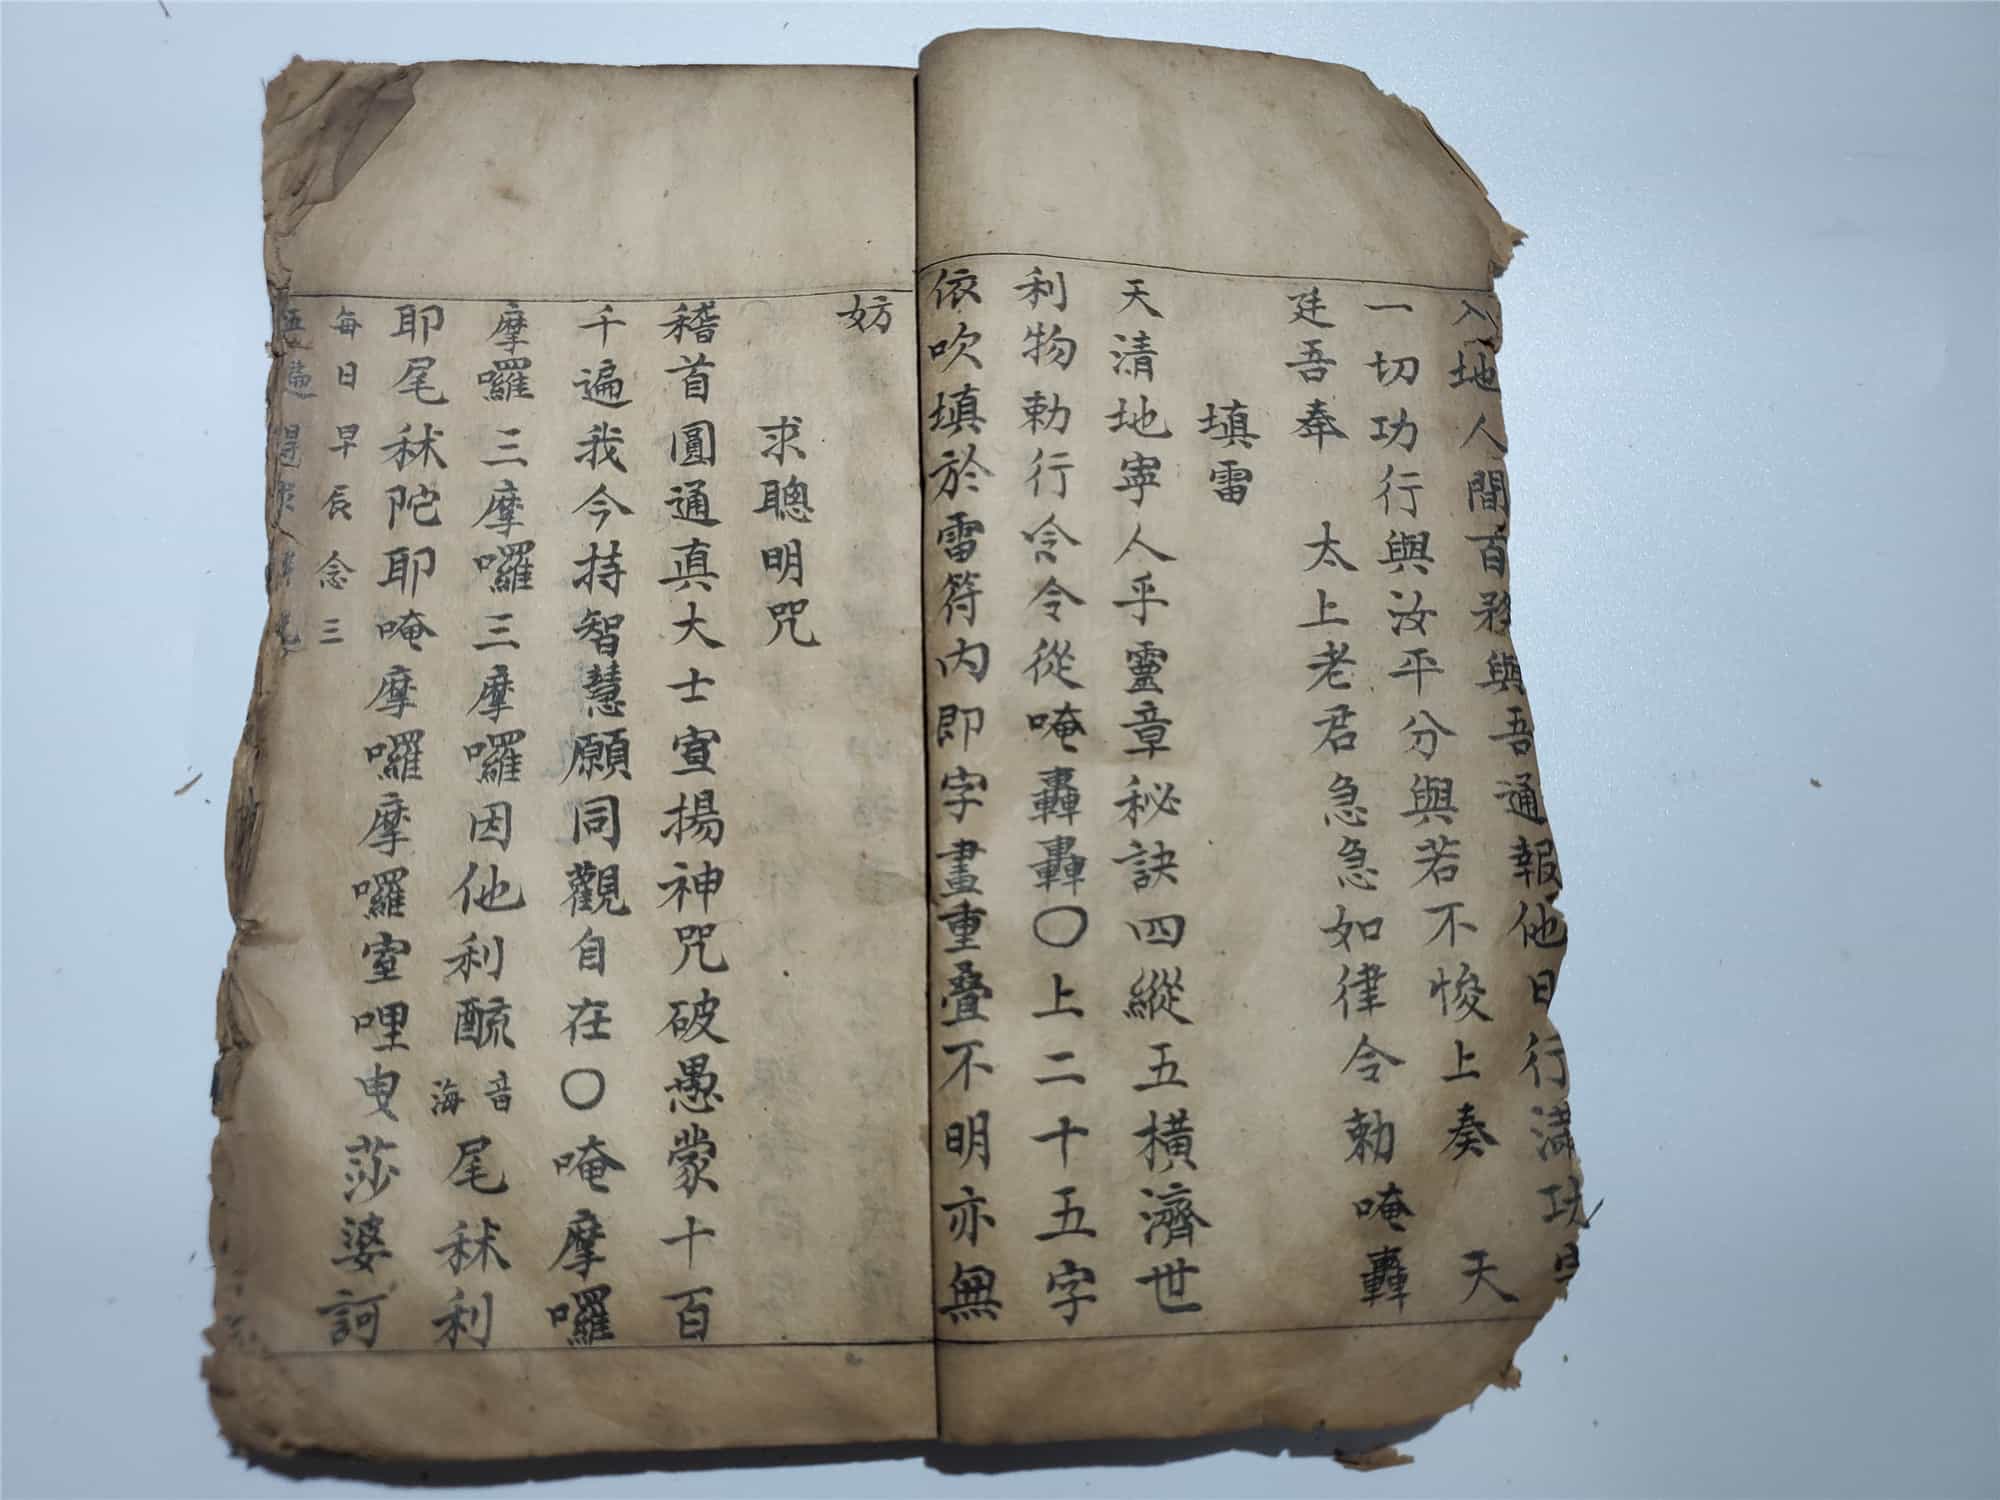 入地人間百般與吾通報他日行滿功
一切功行與汝平分與若不悛上奏 天
廷吾奉 太上老君急急如律令勅唵轟
填雷
天清地寧人乎靈章秘訣四縱五橫濟世
利物勅行令令從唵轟轟〇上二十五字
依吹填於雷符內即字畫重叠不明亦無
妨
求聰明咒
稽首圓通真大士宣揚神咒破愚蒙十百
千遍我今持智慧願同觀自在〇唵摩囉
摩囉三摩囉三摩囉因他利酼音海尾秫利
耶尾秫陀耶唵摩囉摩囉室哩曳莎婆訶
每日早辰念三
五遍